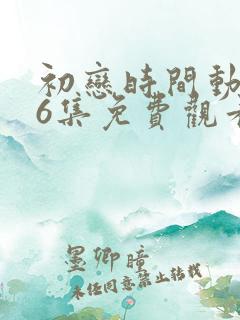 初戀時間動
6集免費觀看
墨卿瞳
未任同意禁止转载